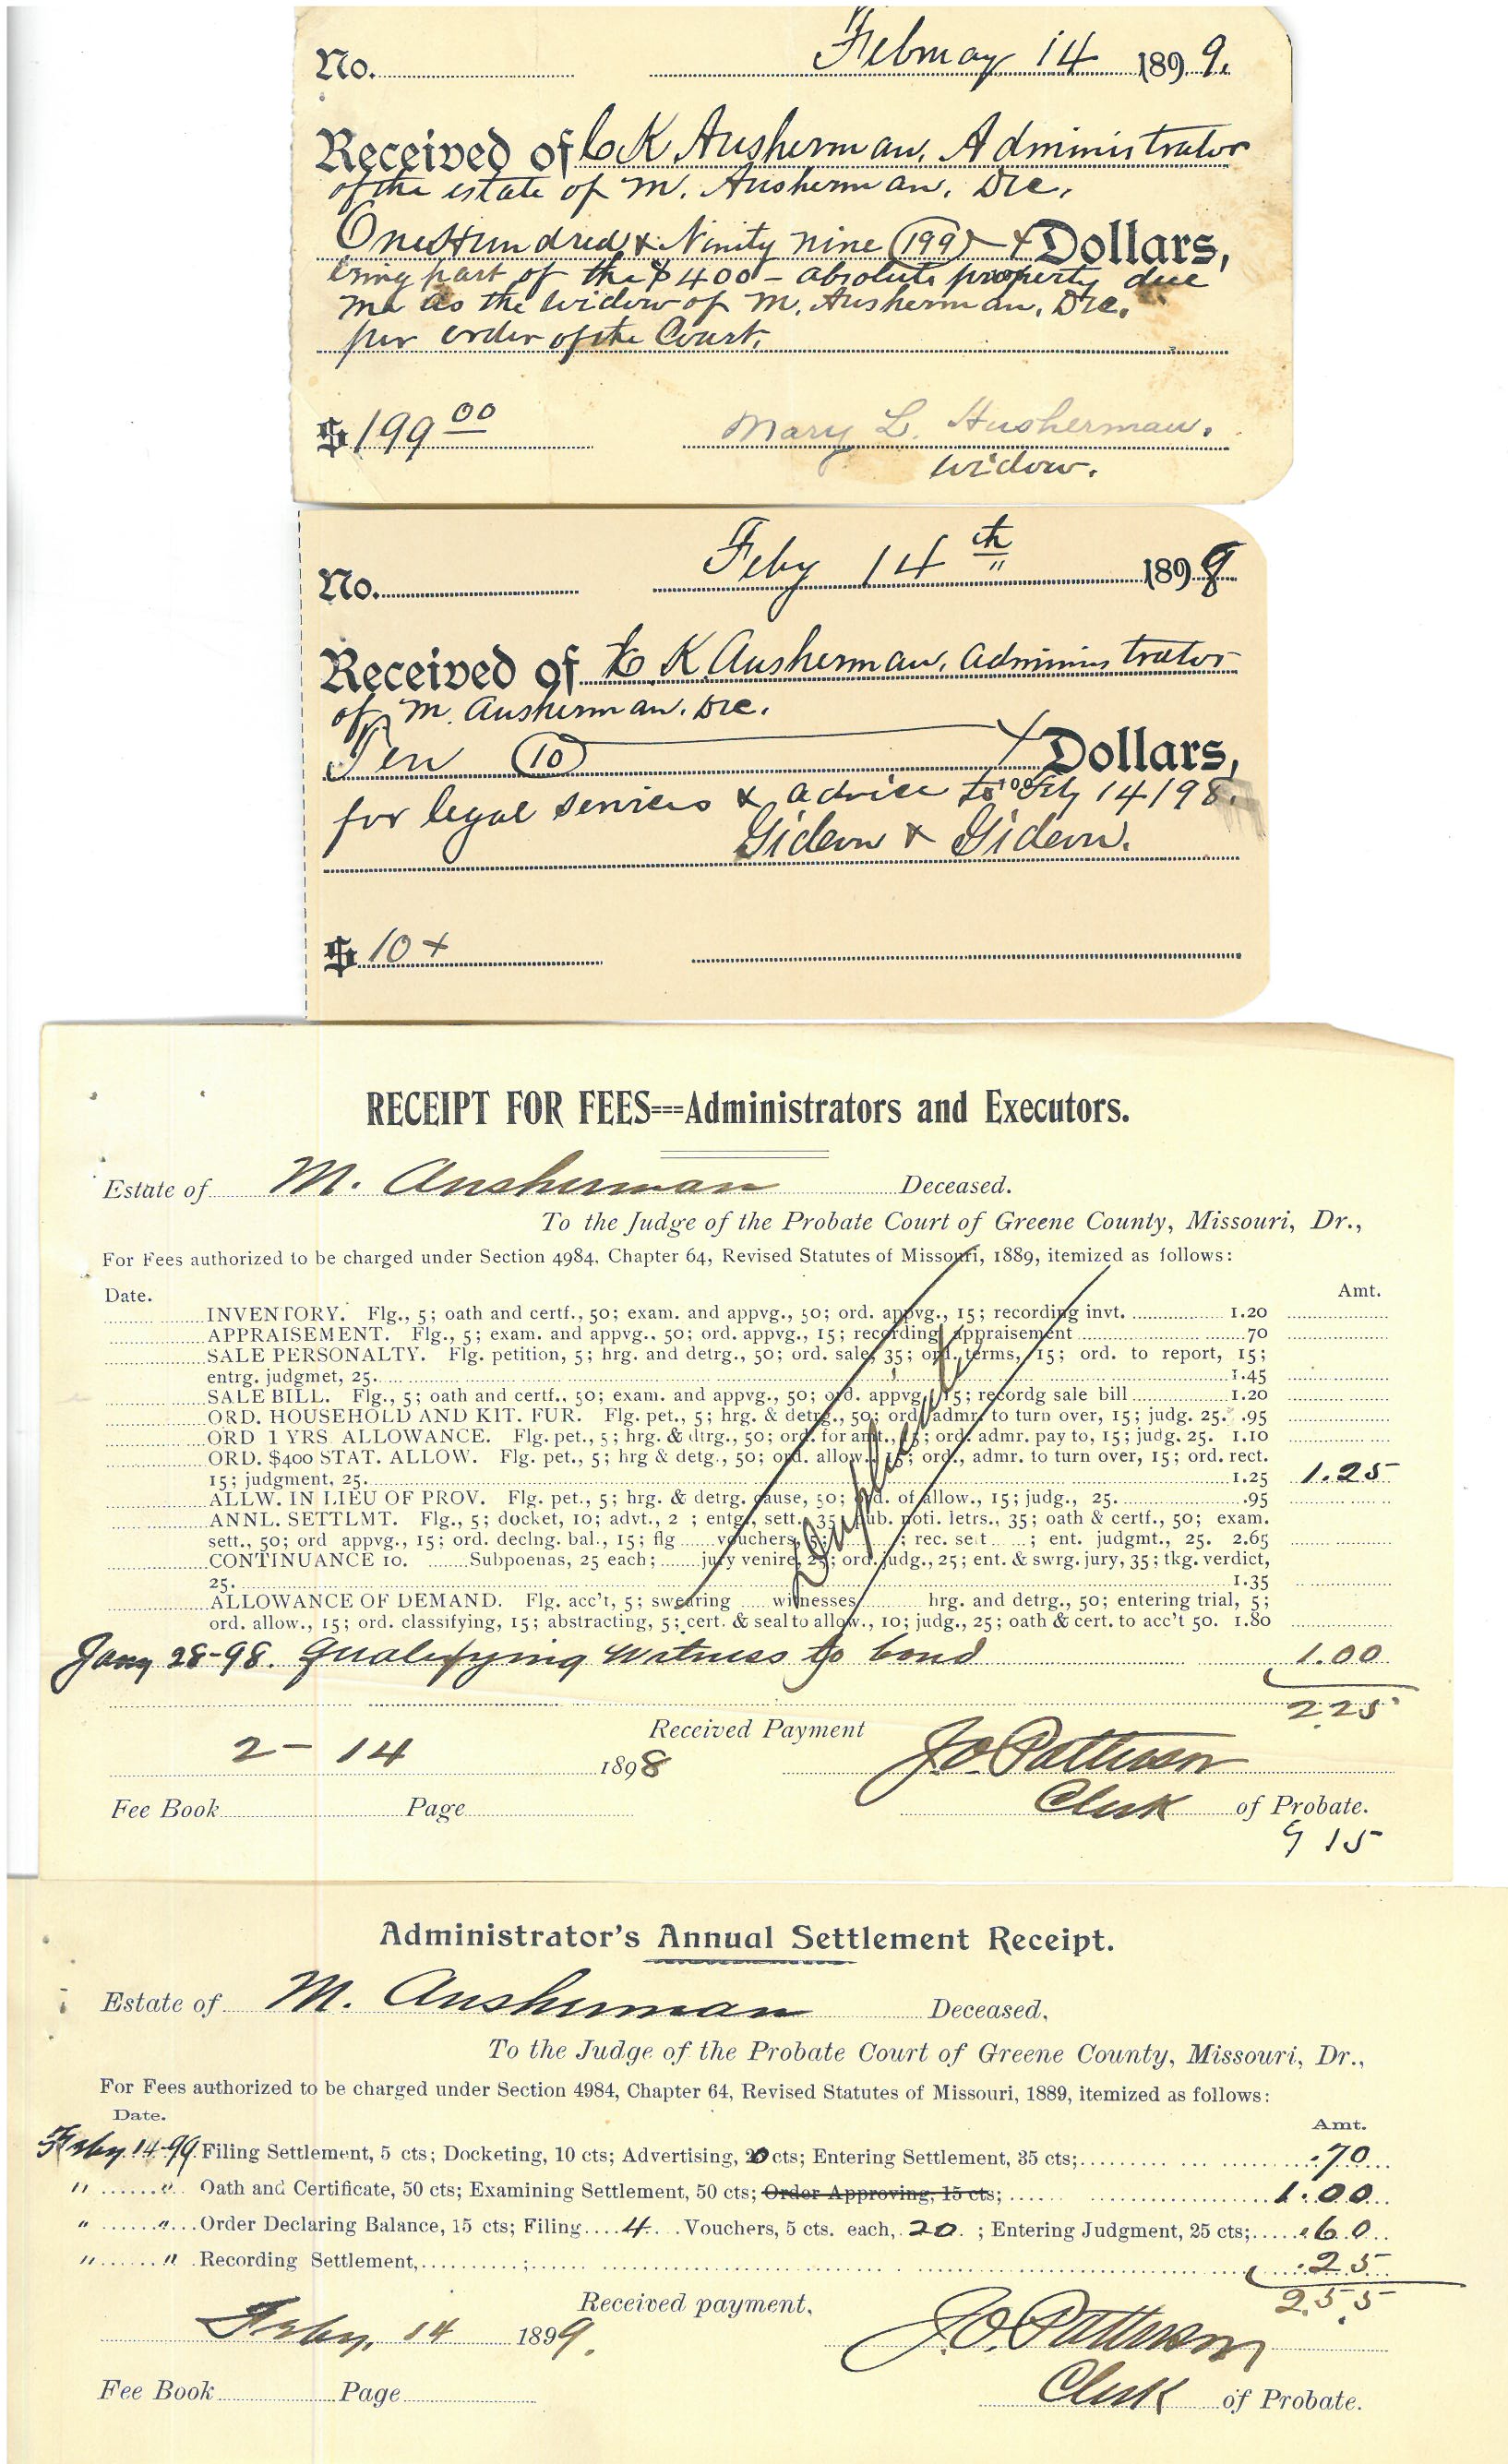 No. February 14 1899.
Received of C K Ausherman, Administrator
of the estate of M. Ausherman, Dec.
One Hundred & Ninity nine (199) Dollars,
being part of the $400 - absolute property due
me as the widow of M. Ausherman, Dec.
per order of the Court.
$199 00 Mary L. Ausherman.
widow.
No. Feby 14th 1898
Received of C. K. Ausherman, Administrator
of M. Ausherman, Dec.
Ten (10) Dollars,
for legal services & advice to Feby 14/98.
Gideon & Gideon.
$10
RECEIPT FOR FEES===Administrators and Executors.
Estate of M. Ausherman Deceased.
To the Judge of the Probate Court of Greene County, Missouri, Dr.,
For Fees authorized to be charged under Section 4984, Chapter 64, Revised Statutes of Missouri, 1889, itemized as follows:
Date. Amt.
INVENTORY. Flg., 5; oath and certf., 50; exam. and appvg., 50; ord. appvg., 15; recording invt. 1.20
APPRAISEMENT. Flg., 5; exam. and appvg., 50; ord. appvg., 15; recording appraisement 70
SALE PERSONALTY. Flg. petition, 5; hrg. and detrg., 50; ord. sale, 35; ord. terms, 15; ord. to report, 15;
entrg. judgmet, 25. 1.45
SALE BILL. Flg., 5; oath and certf., 50; exam. and appvg., 50; ord. appvg., 15; recordg sale bill 1.20
ORD. HOUSEHOLD AND KIT. FUR. Flg. pet., 5; hrg. & detrg., 50; ord. admr. to turn over, 15; judg. 25. .95
ORD 1 YRS. ALLOWANCE. Flg. pet., 5; hrg. & dtrg., 50; ord. for amt., 15; ord. admr. pay to, 15; judg. 25. 1.10
ORD. $400 STAT. ALLOW. Flg. pet., 5; hrg & detg., 50; ord. allow., 15; ord., admr. to turn over, 15; ord. rect.
15; judgment, 25. 1.25 1.25
ALLW. IN LIEU OF PROV. Flg. pet., 5; hrg. & detrg. cause, 50; ord. of allow., 15; judg., 25. .95
ANNL. SETTLMT. Flg., 5; docket, 10; advt., 2 ; entg., sett. 35; pub. noti. letrs., 35; oath & certf., 50; exam.
sett., 50; ord appvg., 15; ord. declng. bal., 15; flg vouchers, 5; ; rec. sett ; ent. judgmt., 25. 2.65
CONTINUANCE 10. Subpoenas, 25 each; jury venire, 25; ord. judg., 25; ent. & swrg. jury, 35; tkg. verdict,
25. 1.35
ALLOWANCE OF DEMAND. Flg. acc't, 5; swearing witnesses hrg. and detrg., 50; entering trial, 5;
ord. allow., 15; ord. classifying, 15; abstracting, 5; cert. & seal to allow., 10; judg., 25; oath & cert. to acc't 50. 1.80
Duplicate
Jany 28-98. Qualifying Witness to bond 1.00
2.25
Received Payment
2-14 1898 J.O. Patterson
Fee Book Page Clerk of Probate.
9 15
Administrator's Annual Settlement Receipt.
Estate of M. Ausherman Deceased,
To the Judge of the Probate Court of Greene County, Missouri, Dr.,
For Fees authorized to be charged under Section 4984, Chapter 64, Revised Statutes of Missouri, 1889, itemized as follows:
Date. Amt.
Feby. 14-99. Filing Settlement, 5 cts; Docketing, 10 cts; Advertising, 20 cts; Entering Settlement, 35 cts; .70
" " Oath and Certificate, 50 cts; Examining Settlement, 50 cts; Order Approving, 15 cts; 1.00
" " Order Declaring Balance, 15 cts; Filing 4 Vouchers, 5 cts. each, 20 ; Entering Judgment, 25 cts; .60
" " Recording Settlement, ; .25
2.55
Received payment,
Feby. 14 1899. J.O. Patterson
Fee Book Page Clerk of Probate.